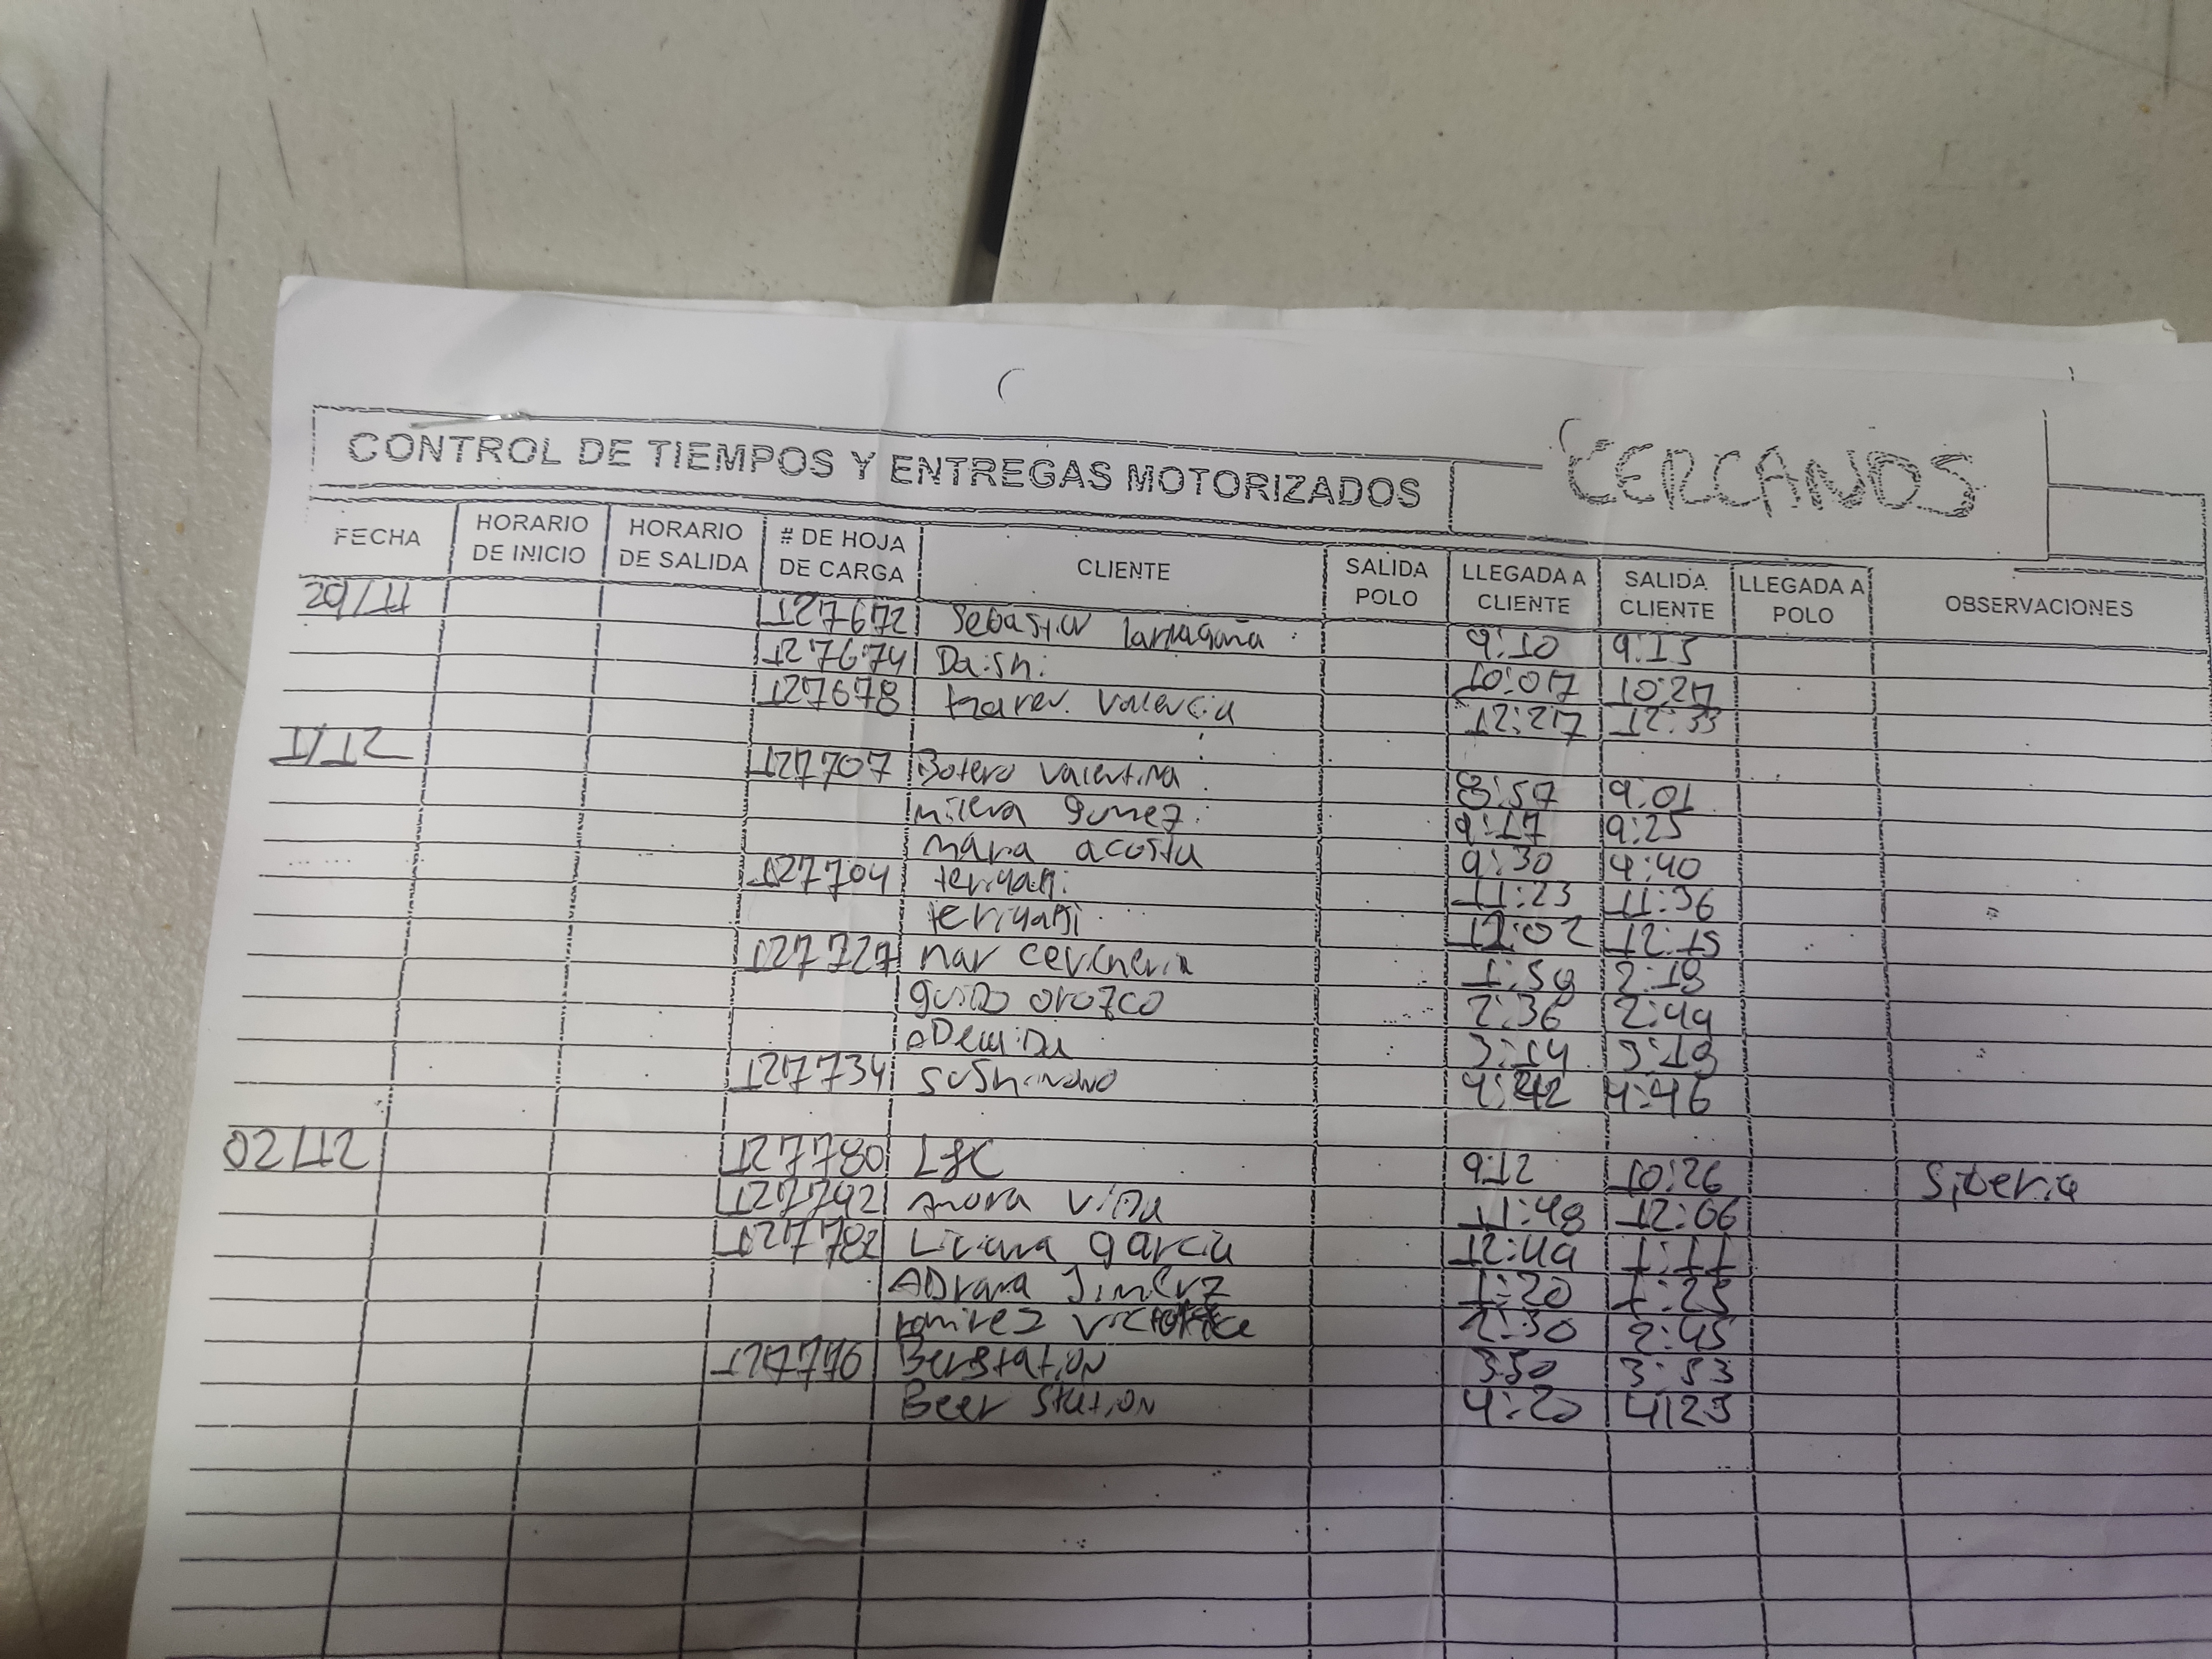 CONTROL DE TIEMPOS Y ENTREGAS MOTORIZADOS CERCANOS
FECHA HORARIO DE INICIO HORARIO DE SALIDA # DE HOJA DE CARGA CLIENTE SALIDA POLO LLEGADA A CLIENTE SALIDA CLIENTE LLEGADA A POLO OBSERVACIONES
127672 Sebastian 9:10 9:15
127674 Daishi 10:07 10:27
127678 Karen Valencia 12:27 12:33
1/12 127707 Botero Valentina 8:57 9:01
milena gomez 9:17 9:25
maria acosta 9:30 9:40
127704 teriyaki 11:23 11:36
teriyaki 12:02 12:15
127727 mar cevicheria 1:59 2:19
guido orozco 2:36 2:49
3:14 3:19
127734 4:42 4:46
02/12 127780 L&C 9:12 10:26 Siberia
127792 Ahora vida 11:48 12:06
127782 Liliana garcia 12:49 1:11
ADriana Jimenez 1:20 1:25
ramirez 2:30 2:45
127776 Berstation 3:50 3:53
Beer Station 4:20 4:23